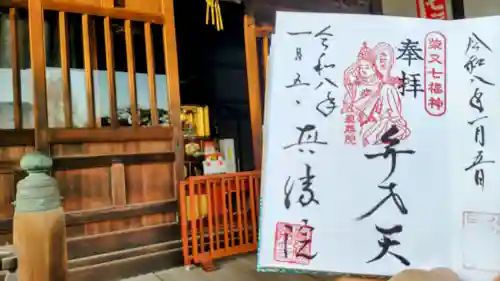 令和八年一月五日
柴又七福神
奉拝
弁才天
真勝院
令和八年
一月五日
真勝院